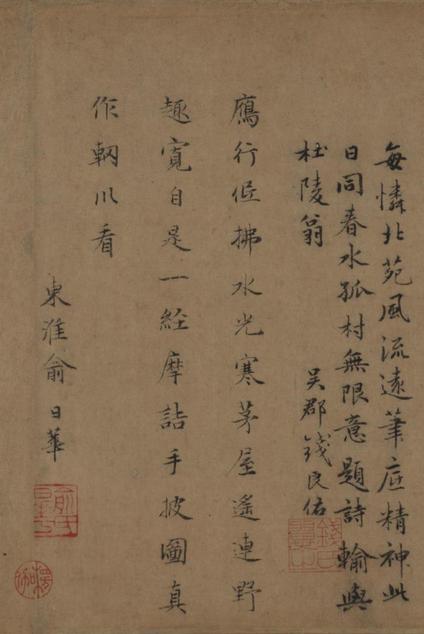 每憐北苑風流遠筆底精神此
日同春水孤村無限意題詩輸與
杜陵翁
吳郡錢良佑
鴈行低拂水光寒茅屋遙連野
趣寬自是一經摩詰手披圖真
作輞川看
東淮俞日華